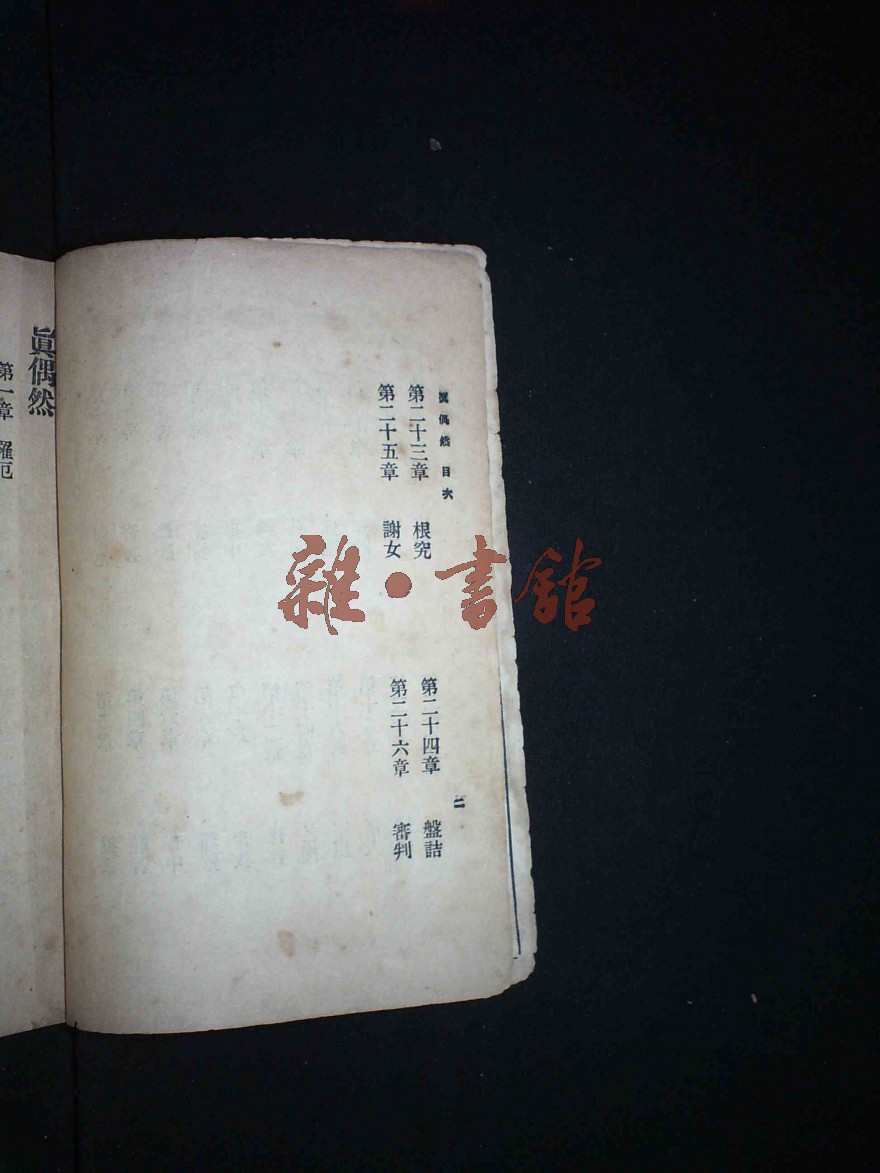 眞偶然 目次
第二十三章 根究
第二十四章 盤詰
第二十五章 謝女
第二十六章 審判
二
眞偶然
第一章 罹厄
雜·書館